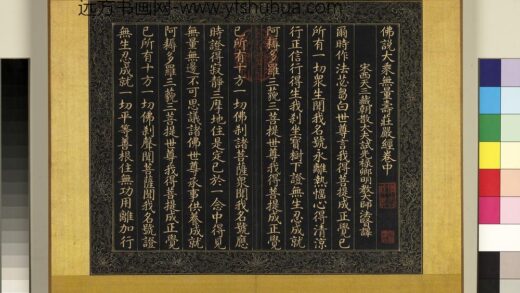 远方书画网-www.yfshuhua.com
佛說大乘無量壽莊嚴經卷中
宋西天三藏朝散大夫試光祿卿明教大師法賢譯
爾時作法苾芻白世尊言我得菩提成正覺已
所有一切衆生聞我名號永離熱惱心得清涼
行正信行得生我刹坐寶樹下證無生忍成就
阿耨多羅三藐三菩提世尊我得菩提成正覺
已所有十方一切佛刹諸菩薩衆聞我名號應
時證得寂靜三摩地住是定已於一念中得見
無量無邊不可思議諸佛世尊承事供養成就
阿耨多羅三藐三菩提世尊我得菩提成正覺
已所有十方一切佛刹聲聞菩薩聞我名號證
無生忍成就一切平等善根住無功用離加行